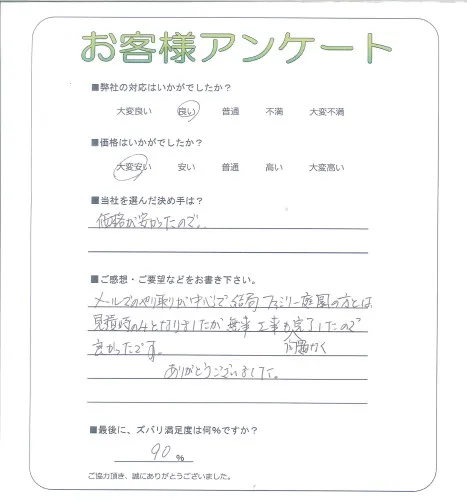 お客様アンケート
■弊社の対応はいかがでしたか？
大変良い 良い 普通 不満 大変不満
■価格はいかがでしたか？
大変安い 安い 普通 高い 大変高い
■当社を選んだ決め手は？
価格が安かったので。
■ご感想・ご要望などをお書き下さい。
メールでのやり取りが中心で結局ファミリー庭園の方とは
見積時のみとなりましたが無事工事も完了したので
問題なく
良かったです。
ありがとうございました。
■最後に、ズバリ満足度は何%ですか？
90 %
ご協力頂き、誠にありがとうございました。